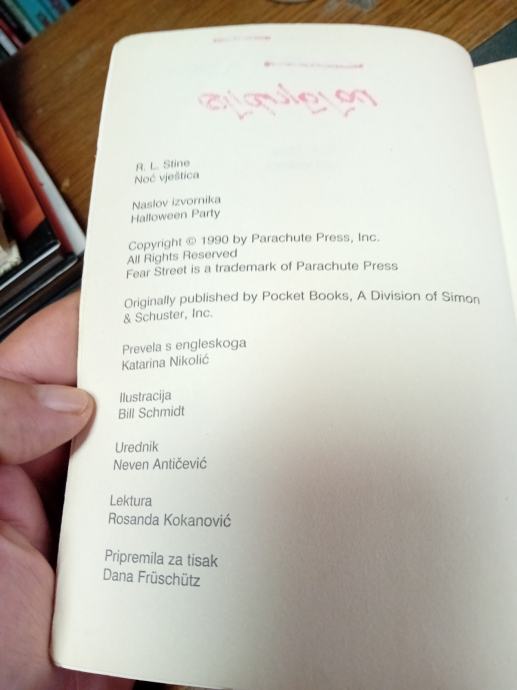 R. L. Stine
Noć vještica
Naslov izvornika
Halloween Party
Copyright © 1990 by Parachute Press, Inc.
All Rights Reserved
Fear Street is a trademark of Parachute Press
Originally published by Pocket Books, A Division of Simon
& Schuster, Inc.
Prevela s engleskoga
Katarina Nikolić
Ilustracija
Bill Schmidt
Urednik
Neven Antičević
Lektura
Rosanda Kokanović
Pripremila za tisak
Dana Früschütz